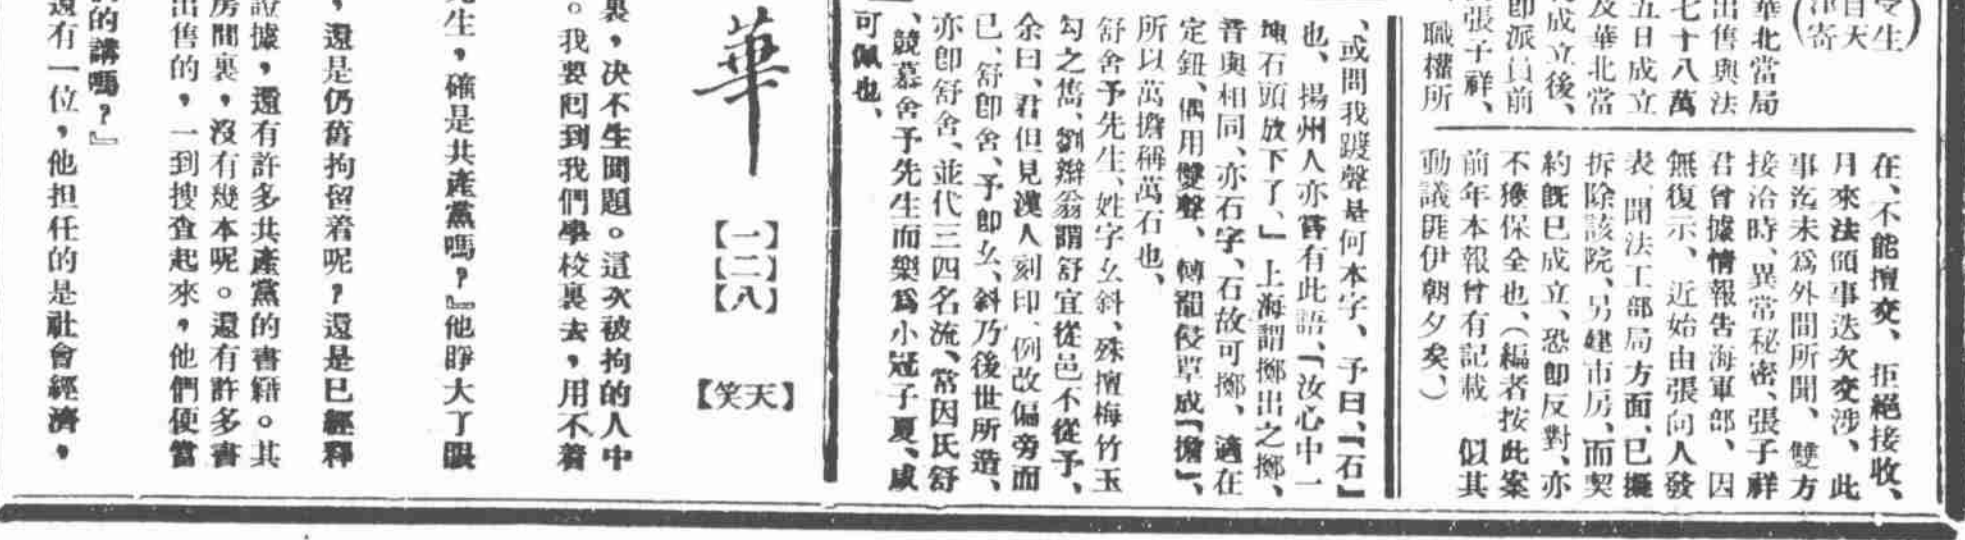 令生
自天
津寄
華北當局
出售與法
七十八萬
五日成立
及華北當
成立後、
即派員前
張子祥、
職權所
在、不能擅交、拒絕接收、
月來法領事迭次交涉、此
事迄未爲外間所聞、雙方
接洽時、異常秘密、張子祥
君曾據情報告海軍部、因
無復示、近始由張向人發
表、聞法工部局方面、已擬
拆除該院、另建市房、而契
約旣已成立、恐卽反對、亦
不獲保全也、(編者按此案
前年本報曾有記載 似其
動議匪伊朝夕矣、)
、或問我踱聲是何本字、予曰、「石」
也、揚州人亦嘗有此語、「汝心中一
塊石頭放下了、」上海謂擲出之擲、
音與相同、亦石字、石故可擲、適在
定鈕、偶用雙聲、轉韻侵覃成「擔」、
所以萬擔稱萬石也、
舒舍予先生、姓字幺斜、殊擅梅竹玉
勾之雋、劉辯翁謂舒宜從邑不從予、
余曰、君但見漢人刻印、例改偏旁而
已、舒卽舍、予卽幺、斜乃後世所造、
亦卽舒舍、並代三四名流、常因氏舒
、競慕舍予先生而樂爲小冠子夏、咸
可佩也、
華
【一】
【二】
【八】
【天笑】
裏，决不生問題。這次被拘的人中
。我要回到我們學校裏去，用不着
先生，確是共產黨嗎？』他睜大了眼
，還是仍舊拘留着呢？還是已經釋
證據，還有許多共產黨的書籍。其
房間裏，沒有幾本呢。還有許多書
出售的，一到搜查起來，他們便當
的講嗎？』
還有一位，他担任的是社會經濟，